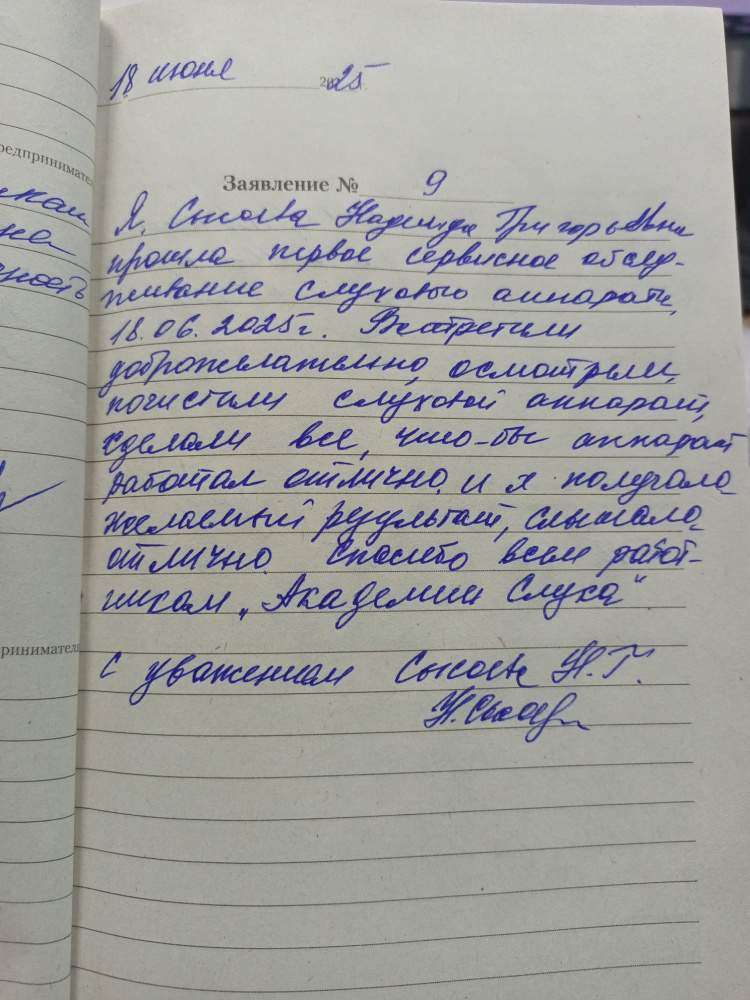 18 июня 2025г.
Заявление № 9
Я, Сысоева Надежда Григорьевна
прошла первое сервисное обслу-
живание слухового аппарата,
18.06.2025г. Встретили
доброжелательно, осмотрели,
почистили слуховой аппарат,
сделали все, что-бы аппарат
работал отлично. и я получала
желаемый результат, слышала
отлично. Спасибо всем работ-
никам „Академии Слуха“
С уважением Сысоева Н.Г.
редпринимател
на
ность
ринимател